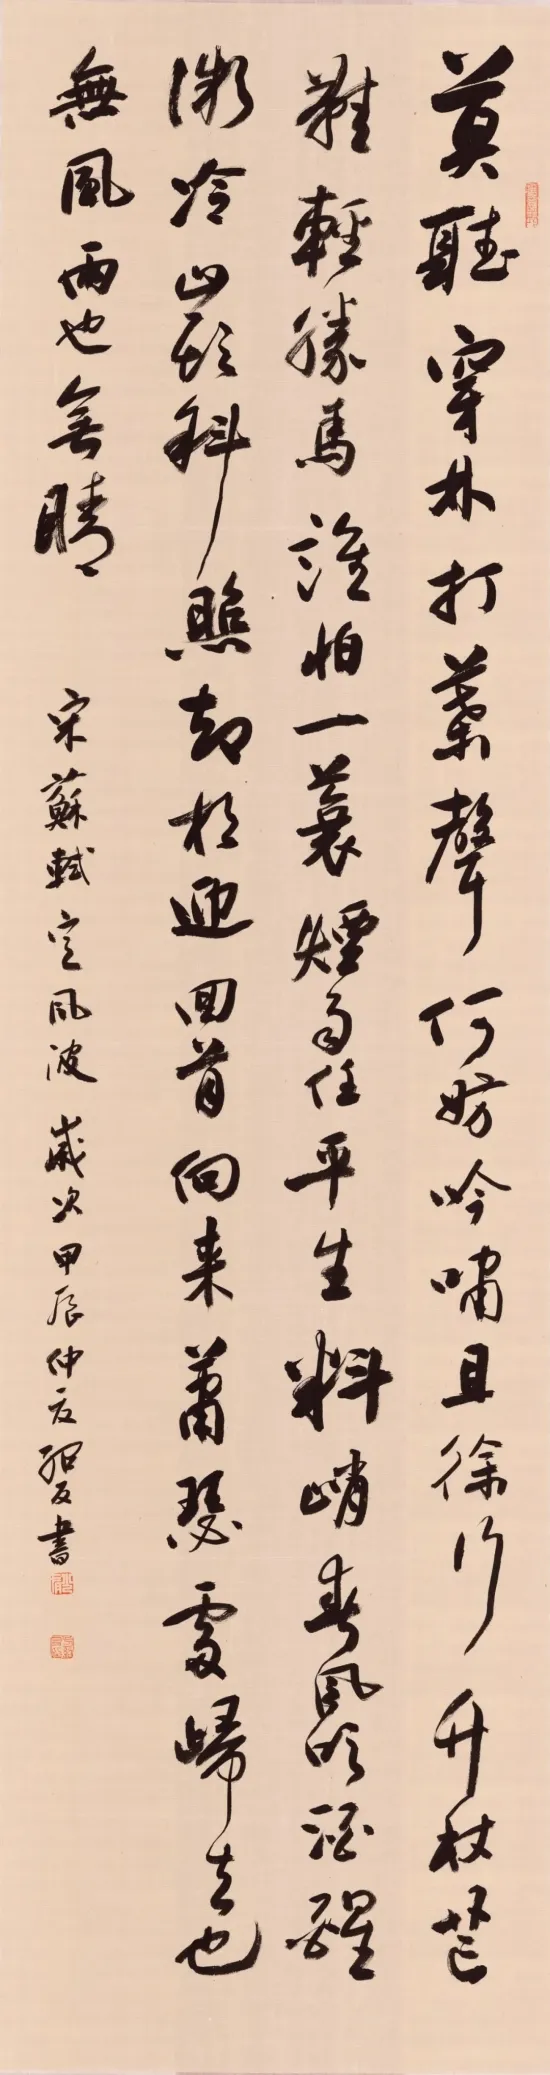 莫聽穿林打葉聲何妨吟嘯且徐行竹杖芒
鞋輕勝馬誰怕一蓑煙雨任平生料峭春風吹酒醒
微冷山頭斜照却相迎回首向來蕭瑟處歸去也
無風雨也無晴
宋蘇軾定風波歲次甲辰仲友書